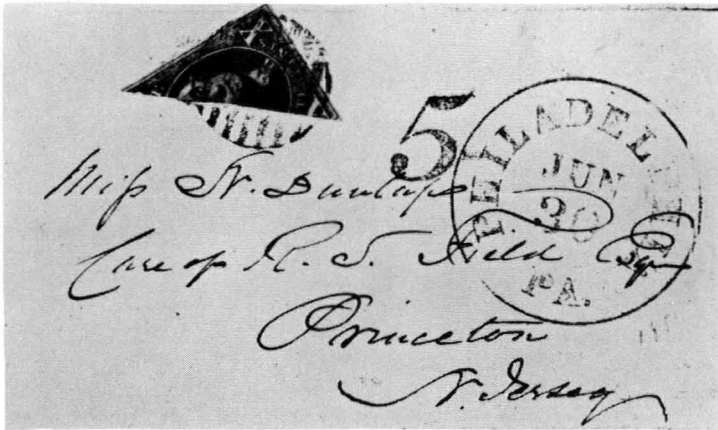 5
PHILADELPHIA
JUN
30
PA.
Miss N. Dunlap
Care of R. S. Field Esq.
Princeton
N. Jersey